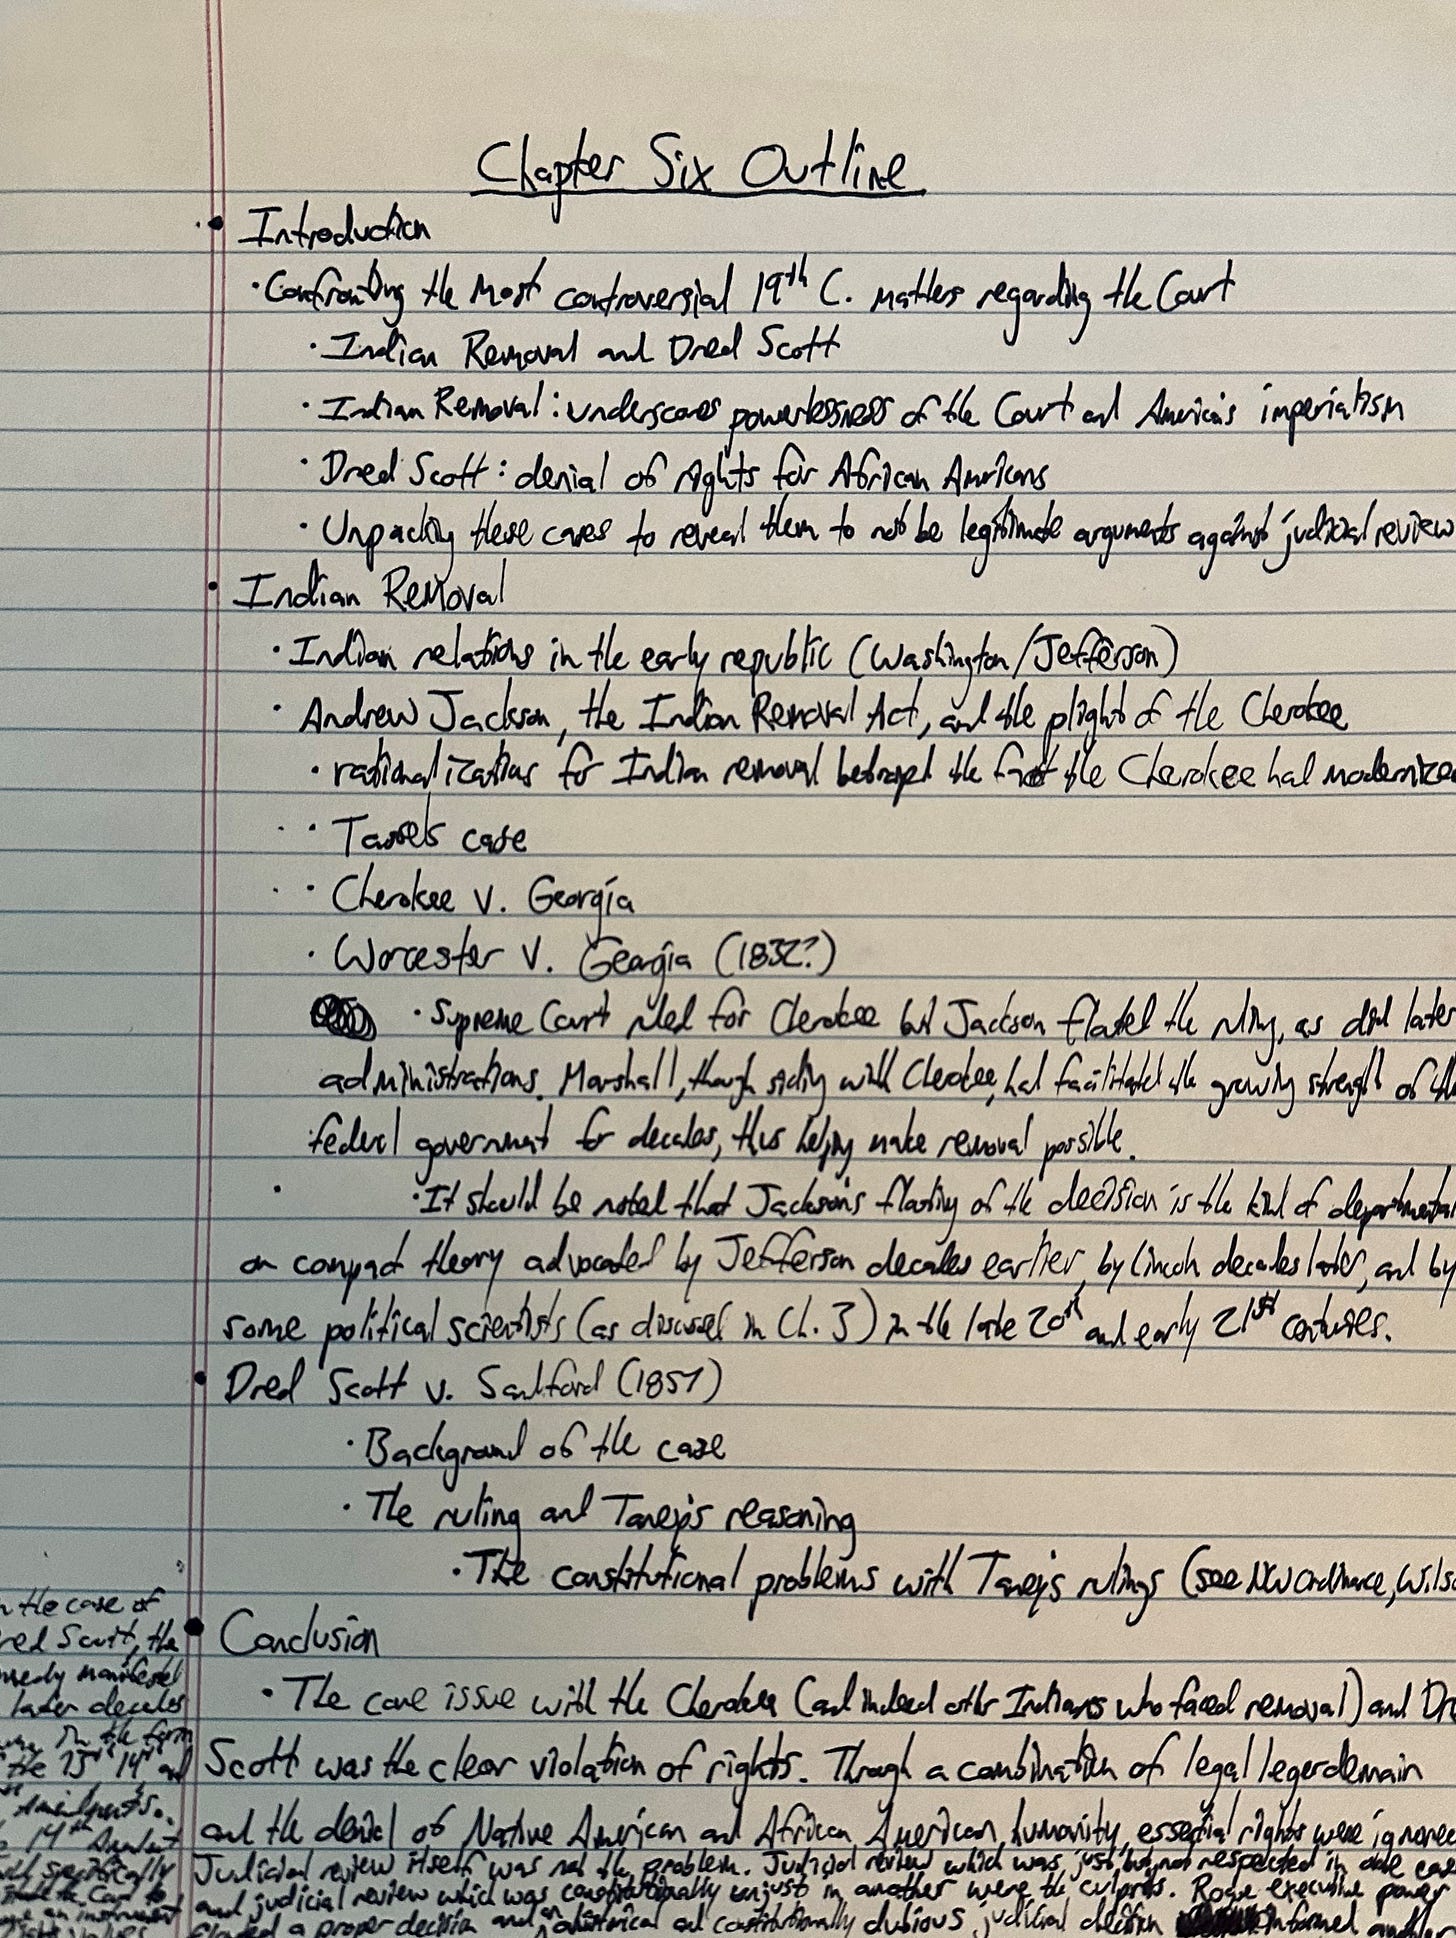 Chapter Six Outline
• Introduction
· Confronting the Most controversial 19th C. matters regarding the Court
· Indian Removal and Dred Scott
· Indian Removal: underscores powerlessness of the Court and America's imperialism
· Dred Scott: denial of rights for African Americans
· Unpacking these cases to reveal them to not be legitimate arguments against judicial review
• Indian Removal
· Indian relations in the early republic (Washington/Jefferson)
· Andrew Jackson, the Indian Removal Act, and the plight of the Cherokee
· rationalizations for Indian removal betrayed the fact the Cherokee had modernized
· Tassel's case
· Cherokee v. Georgia
· Worcester v. Georgia (1832?)
· Supreme Court ruled for Cherokee but Jackson flouted the ruling, as did later
administrations. Marshall, though siding with Cherokee, had facilitated the growing strength of the
federal government for decades, thus helping make removal possible.
· It should be noted that Jackson's flouting of the decision is the kind of departmental
or compact theory advocated by Jefferson decades earlier, by Lincoln decades later, and by
some political scientists (as discussed in Ch. 3) in the late 20th and early 21st centuries.
• Dred Scott v. Sandford (1857)
· Background of the case
· The ruling and Taney's reasoning
· The constitutional problems with Taney's rulings (see NW Ordinance, Wils
• Conclusion
· The core issue with the Cherokee (and indeed other Indians who faced removal) and Dr
Scott was the clear violation of rights. Through a combination of legal legerdemain
and the denial of Native American and African American humanity, essential rights were ignored
Judicial review itself was not the problem. Judicial review which was just but not respected in one case
and judicial review which was constitutionally unjust in another were the culprits. Rogue executive power
a proper decision and an ahistorical and constitutionally dubious judicial decision informed another
the case of
red Scott, the
manifested
later decades
in the form
the 13th 14th and
Amendments.
14th
specifically
the Court to
an instrument